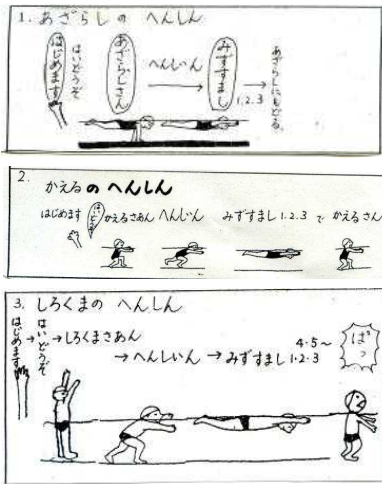 1. あざらしの へんしん
はじめます
はいどうぞ
あざらしさん
へんしいん
みずすまし
1.2.3
あざらしにもどる。
2. かえるの へんしん
はじめます はいどうぞ かえるさあん へんしいん みずすまし 1.2.3 で かえるさん
3. しろくまの へんしん
はじめます
→はいどうぞ
→しろくまさあん
→へんしいん →みずすまし 1.2.3
4.5〜
ぱっ